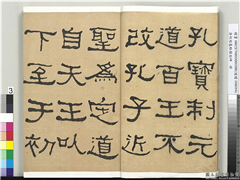 孔寶制元
道百王不
改孔子近
聖爲定道
自天王以
下至于初
3